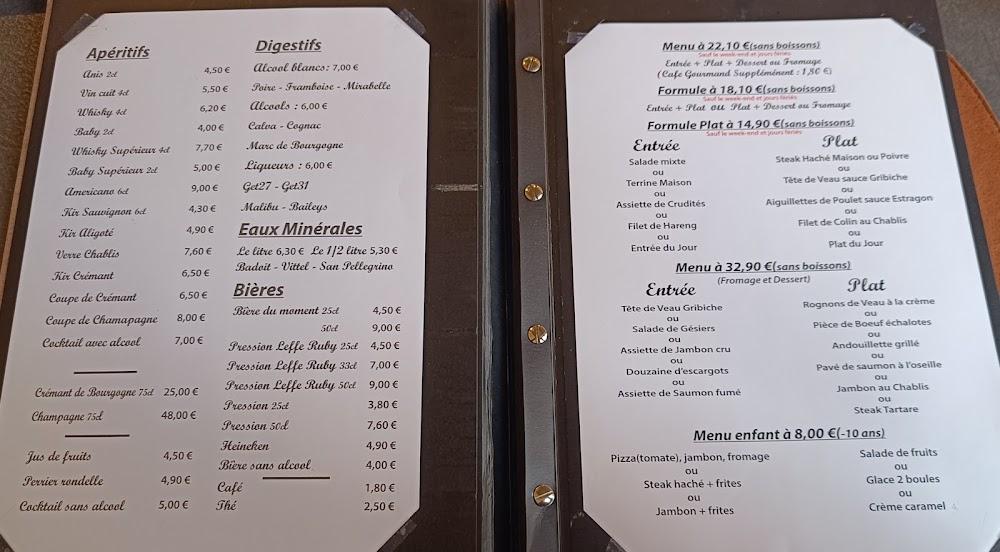 Apéritifs
Anis 2cl 4,50 €
Vin cuit 4cl 5,50 €
Whisky 4cl 6,20 €
Baby 2cl 4,00 €
Whisky Supérieur 4cl 7,70 €
Baby Supérieur 2cl 5,00 €
Americano 6cl 9,00 €
Kir Sauvignon 6cl 4,30 €
Kir Aligoté 4,90 €
Verre Chablis 7,60 €
Kir Crémant 6,50 €
Coupe de Crémant 6,50 €
Coupe de Chamapagne 8,00 €
Cocktail avec alcool 7,00 €
Crémant de Bourgogne 75cl 25,00 €
Champagne 75cl 48,00 €
Jus de fruits 4,50 €
Perrier rondelle 4,90 €
Cocktail sans alcool 5,00 €
Digestifs
Alcool blancs: 7,00 €
Poire - Framboise - Mirabelle
Alcools : 6,00 €
Calva - Cognac
Marc de Bourgogne
Liqueurs : 6,00 €
Get27 - Get31
Malibu - Baileys
Eaux Minérales
Le litre 6,30 € Le 1/2 litre 5,30 €
Badoit - Vittel - San Pellegrino
Bières
Bière du moment 25cl 4,50 €
50cl 9,00 €
Pression Leffe Ruby 25cl 4,50 €
Pression Leffe Ruby 33cl 7,00 €
Pression Leffe Ruby 50cl 9,00 €
Pression 25cl 3,80 €
Pression 50cl 7,60 €
Heineken 4,90 €
Bière sans alcool 4,00 €
Café 1,80 €
Thé 2,50 €
Menu à 22,10 €(sans boissons)
Sauf le week-end et jours fériés
Entrée + Plat + Dessert ou Fromage
(Cafe Gourmand Supplémement : 1,80 €)
Formule à 18,10 €(sans boissons)
Sauf le week-end et jours fériés
Entrée + Plat ou Plat + Dessert ou Fromage
Formule Plat à 14,90 €(sans boissons)
Sauf le week-end et jours fériés
Entrée
Salade mixte
ou
Terrine Maison
ou
Assiette de Crudités
ou
Filet de Hareng
ou
Entrée du Jour
Plat
Steak Haché Maison ou Poivre
ou
Tête de Veau sauce Gribiche
ou
Aiguillettes de Poulet sauce Estragon
ou
Filet de Colin au Chablis
ou
Plat du Jour
Menu à 32,90 €(sans boissons)
(Fromage et Dessert)
Entrée
Tête de Veau Gribiche
ou
Salade de Gésiers
ou
Assiette de Jambon cru
ou
Douzaine d'escargots
ou
Assiette de Saumon fumé
Plat
Rognons de Veau à la crème
ou
Pièce de Boeuf échalotes
ou
Andouillette grillé
ou
Pavé de saumon à l'oseille
ou
Jambon au Chablis
ou
Steak Tartare
Menu enfant à 8,00 €(-10 ans)
Pizza(tomate), jambon, fromage
ou
Steak haché + frites
ou
Jambon + frites
Salade de fruits
ou
Glace 2 boules
ou
Crème caramel